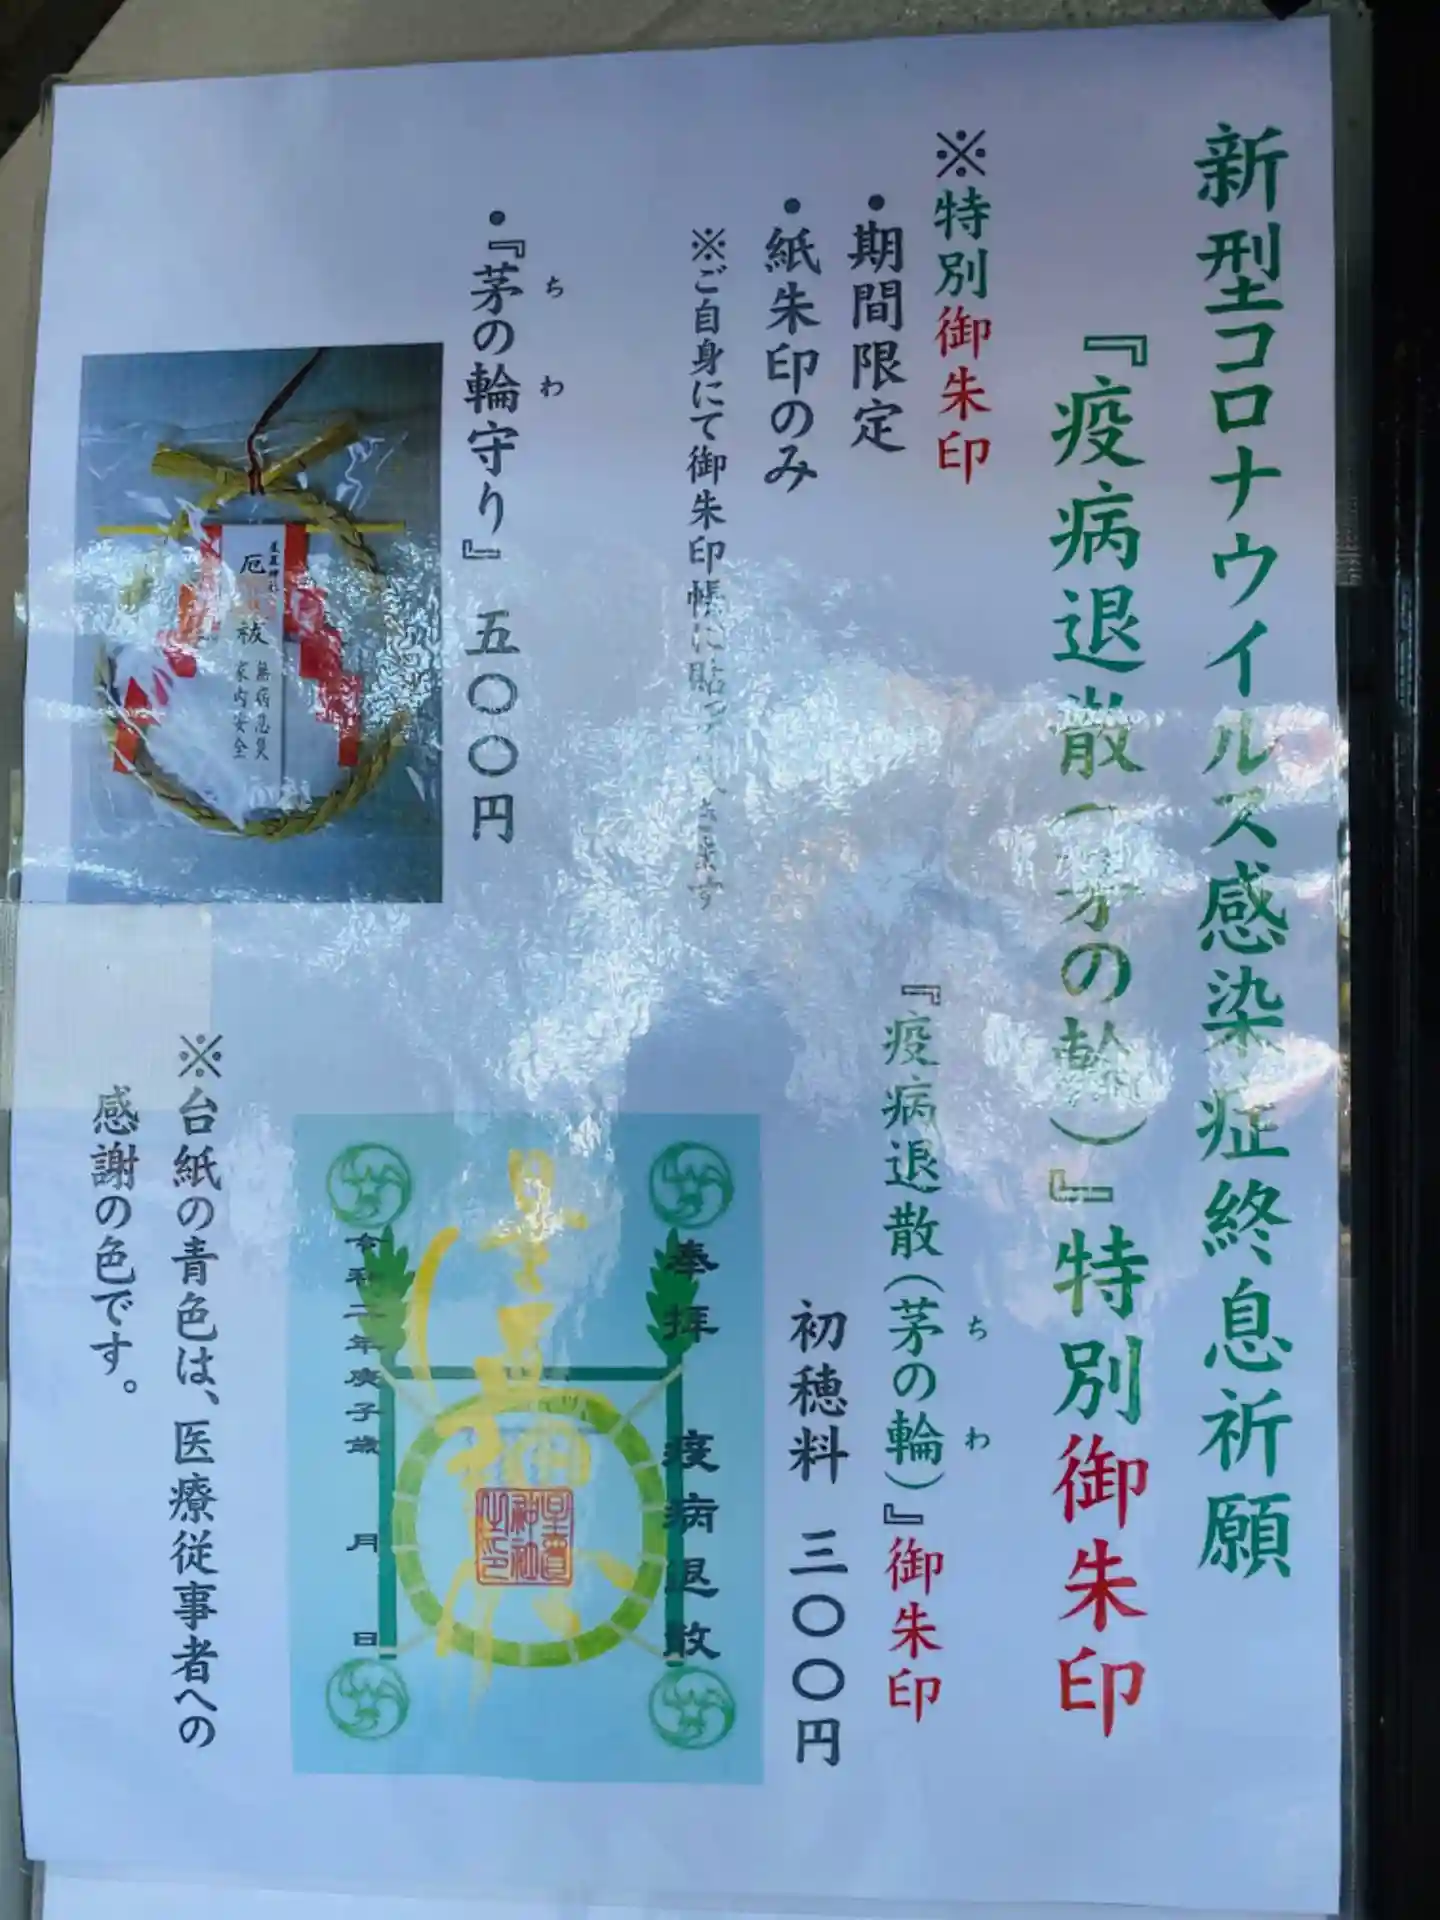 新型コロナウイルス感染症終息祈願
『疫病退散(茅の輪)』特別御朱印
※特別御朱印
・期間限定
・紙朱印のみ
※ご自身にて御朱印帳に貼って
『疫病退散(茅の輪)』御朱印
ちわ
初穂料 三〇〇円
・『茅の輪守り』 五〇〇円
ちわ
厄
祓
無病息災
家内安全
奉拝 疫病退散
星置神社
令和二年庚子歳 月 日
※台紙の青色は、医療従事者への
感謝の色です。